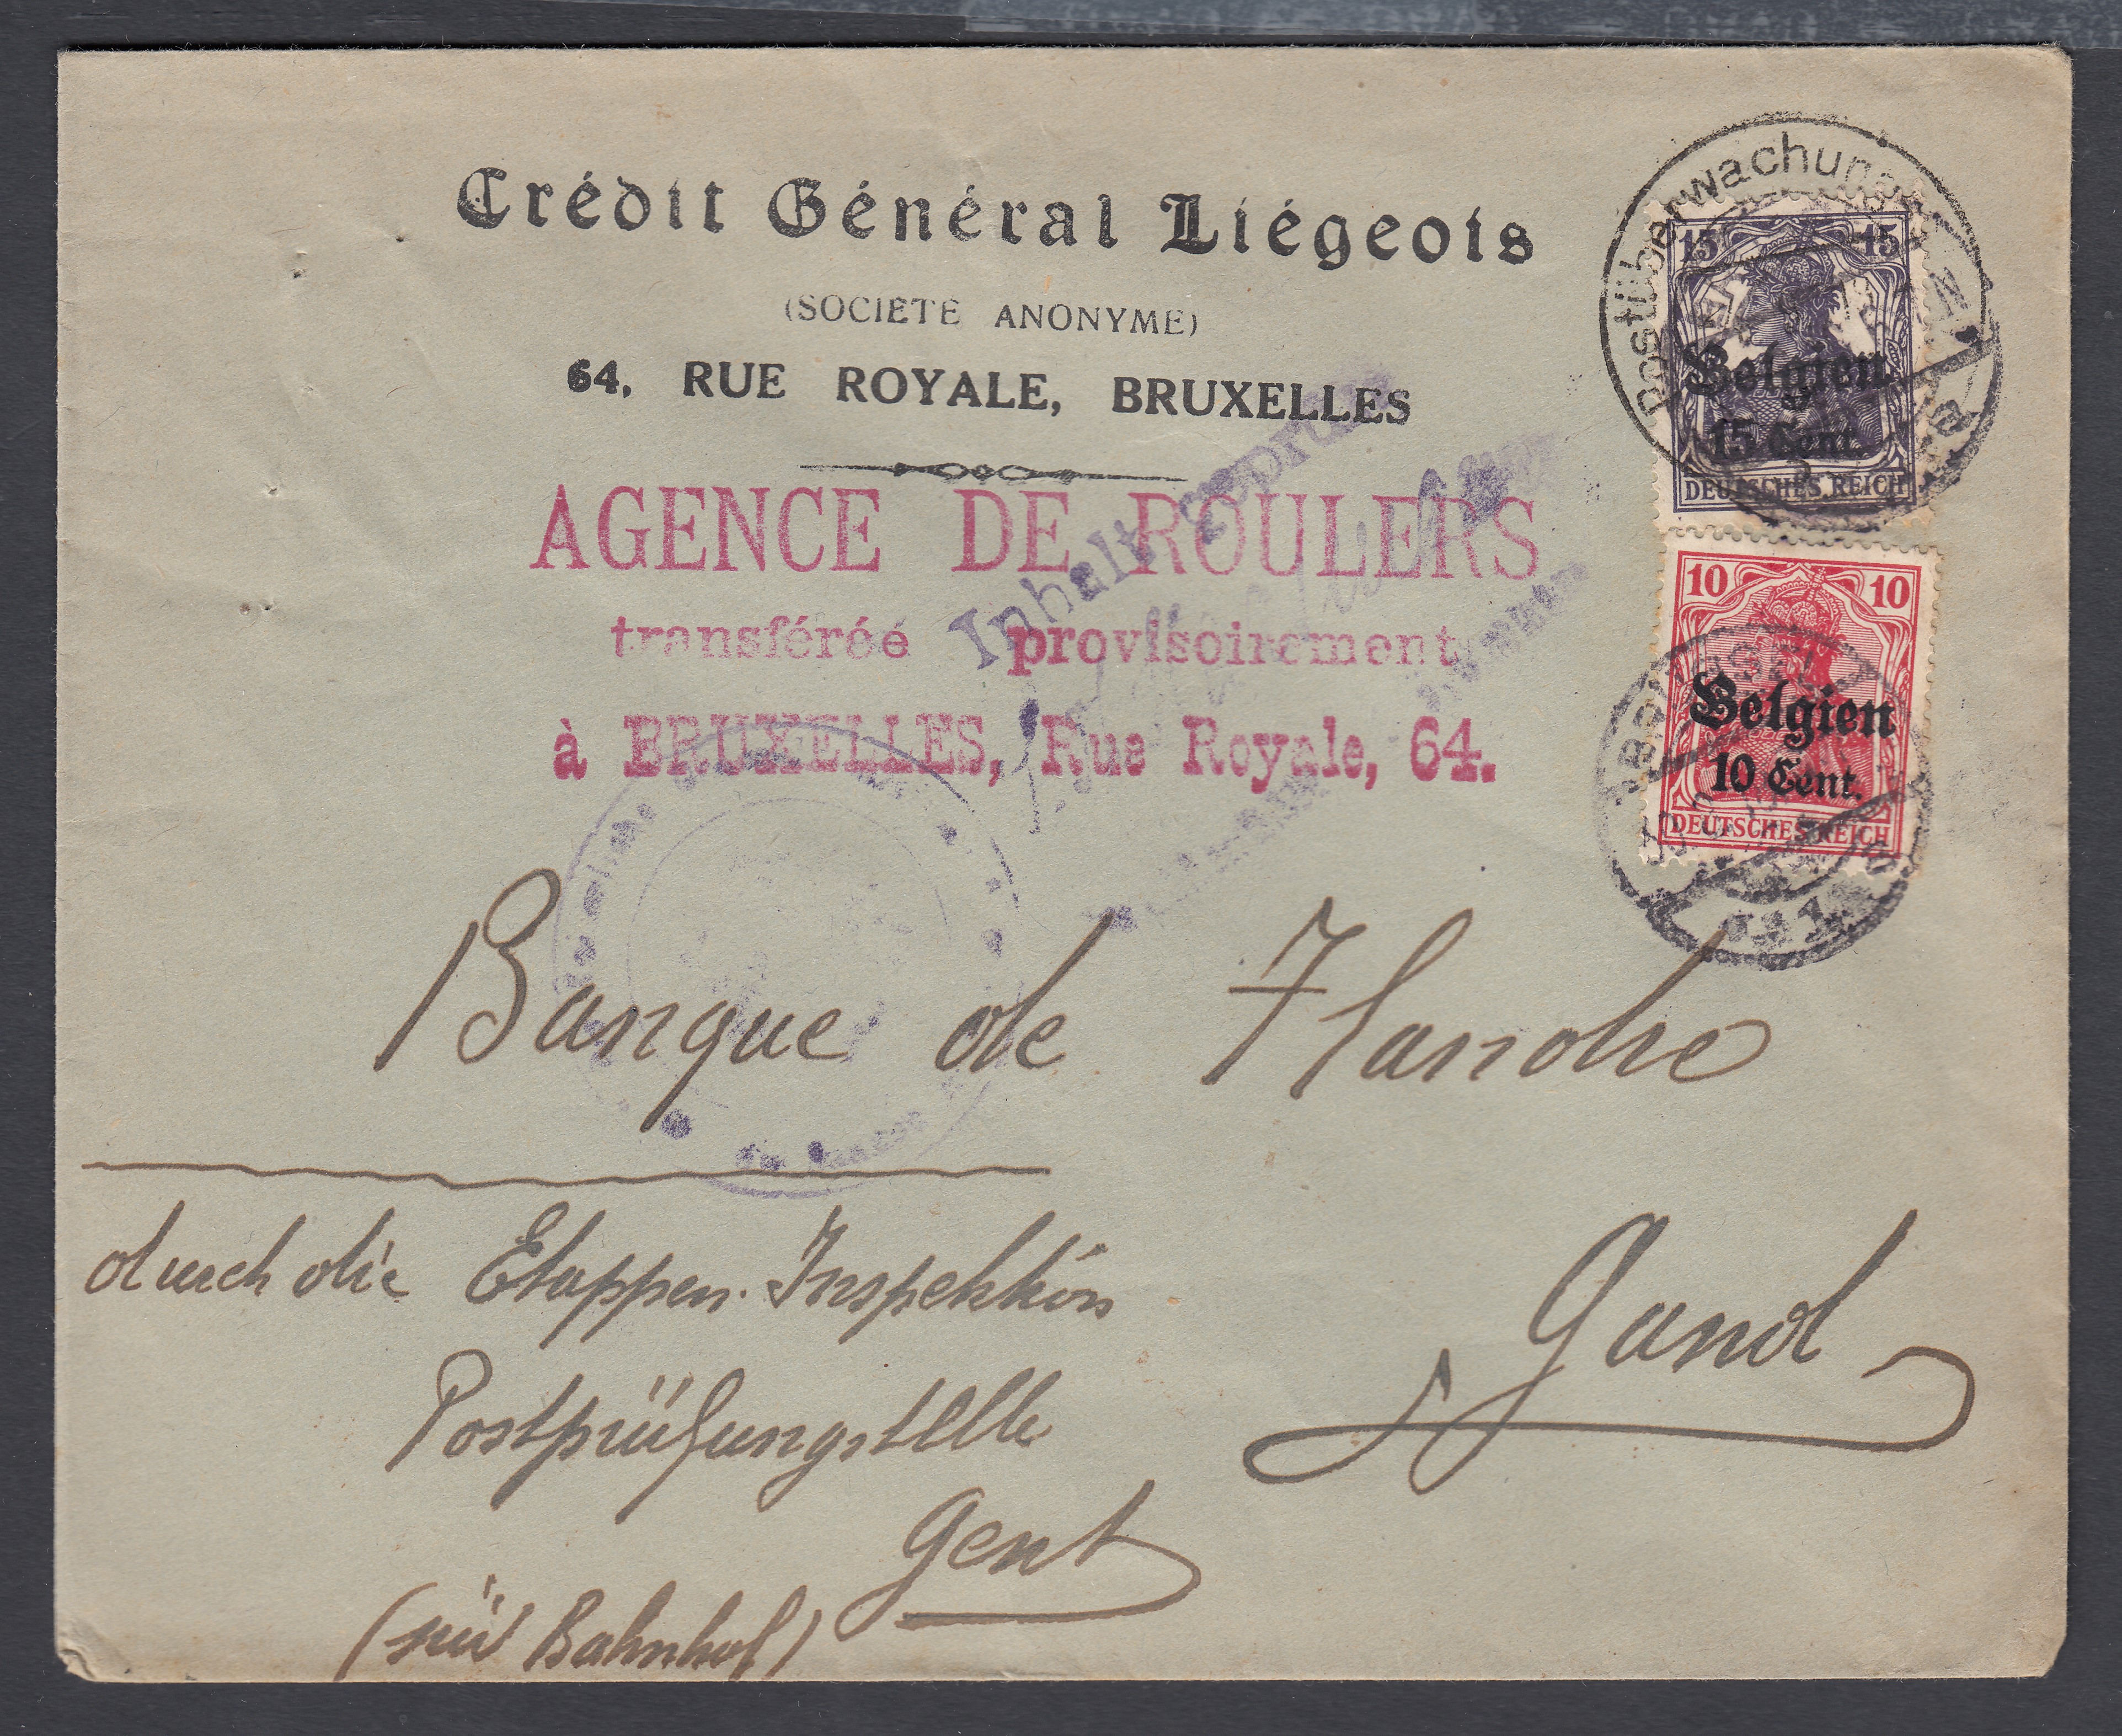 Crédit Général Liégeois
(SOCIETE ANONYME)
64, RUE ROYALE, BRUXELLES
AGENCE DE ROULERS
transféréé provisoirement
à BRUXELLES, Rue Royale, 64.
Inhalt geprüft
Postüberwachung
15 15
Belgien
15 Cent.
DEUTSCHES REICH
10 10
Belgien
10 Cent.
DEUTSCHES REICH
Banque de Flandre
Gand
durch die Etappen-Inspektion
Postprüfungstelle
Gent
(süd Bahnhof)